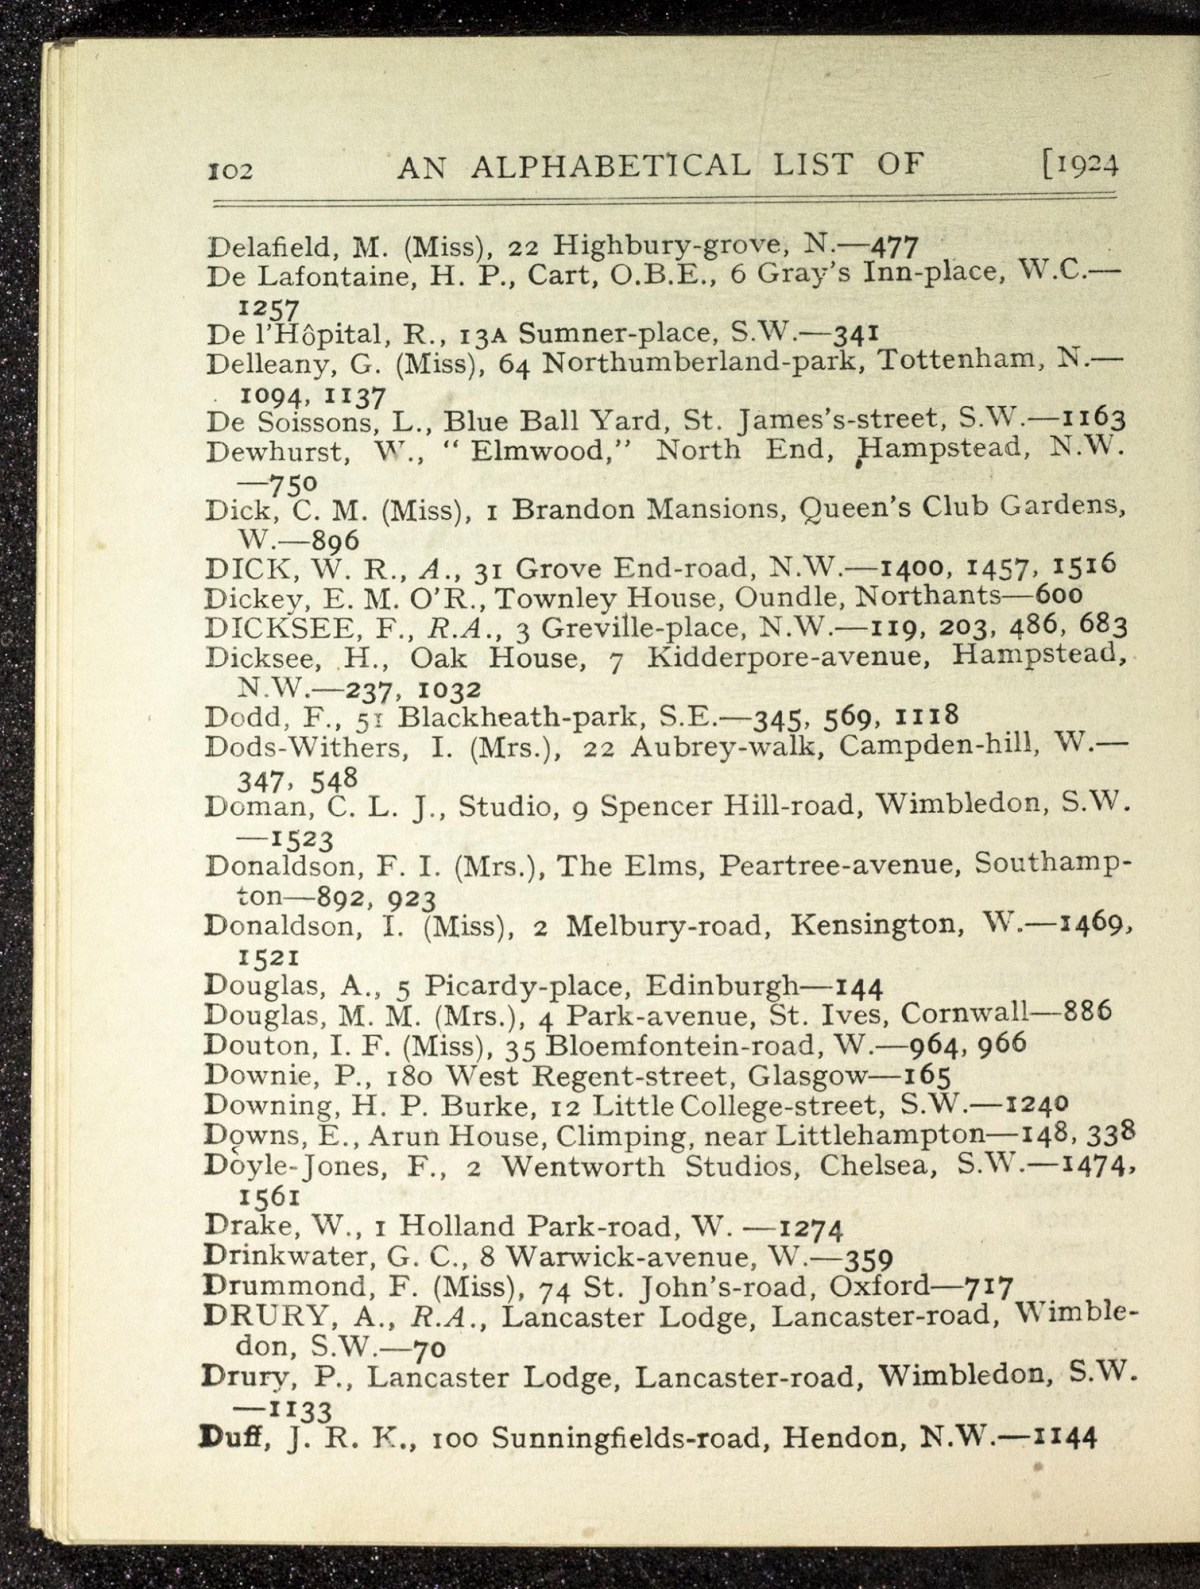 102 AN ALPHABETICAL LIST OF [1924
Delafield, M. (Miss), 22 Highbury-grove, N.—477
De Lafontaine, H. P., Cart, O.B.E., 6 Gray's Inn-place, W.C.—
1257
De l'Hôpital, R., 13A Sumner-place, S.W.—341
Delleany, G. (Miss), 64 Northumberland-park, Tottenham, N.—
1094, 1137
De Soissons, L., Blue Ball Yard, St. James's-street, S.W.—1163
Dewhurst, W., "Elmwood," North End, Hampstead, N.W.
—750
Dick, C. M. (Miss), 1 Brandon Mansions, Queen's Club Gardens,
W.—896
DICK, W. R., A., 31 Grove End-road, N.W.—1400, 1457, 1516
Dickey, E. M. O'R., Townley House, Oundle, Northants—600
DICKSEE, F., R.A., 3 Greville-place, N.W.—119, 203, 486, 683
Dicksee, H., Oak House, 7 Kidderpore-avenue, Hampstead,
N.W.—237, 1032
Dodd, F., 51 Blackheath-park, S.E.—345, 569, 1118
Dods-Withers, I. (Mrs.), 22 Aubrey-walk, Campden-hill, W.—
347, 548
Doman, C. L. J., Studio, 9 Spencer Hill-road, Wimbledon, S.W.
—1523
Donaldson, F. I. (Mrs.), The Elms, Peartree-avenue, Southamp-
ton—892, 923
Donaldson, I. (Miss), 2 Melbury-road, Kensington, W.—1469,
1521
Douglas, A., 5 Picardy-place, Edinburgh—144
Douglas, M. M. (Mrs.), 4 Park-avenue, St. Ives, Cornwall—886
Douton, I. F. (Miss), 35 Bloemfontein-road, W.—964, 966
Downie, P., 180 West Regent-street, Glasgow—165
Downing, H. P. Burke, 12 Little College-street, S.W.—1240
Downs, E., Arun House, Climping, near Littlehampton—148, 338
Doyle-Jones, F., 2 Wentworth Studios, Chelsea, S.W.—1474,
1561
Drake, W., 1 Holland Park-road, W. —1274
Drinkwater, G. C., 8 Warwick-avenue, W.—359
Drummond, F. (Miss), 74 St. John's-road, Oxford—717
DRURY, A., R.A., Lancaster Lodge, Lancaster-road, Wimble-
don, S.W.—70
Drury, P., Lancaster Lodge, Lancaster-road, Wimbledon, S.W.
—1133
Duff, J. R. K., 100 Sunningfields-road, Hendon, N.W.—1144